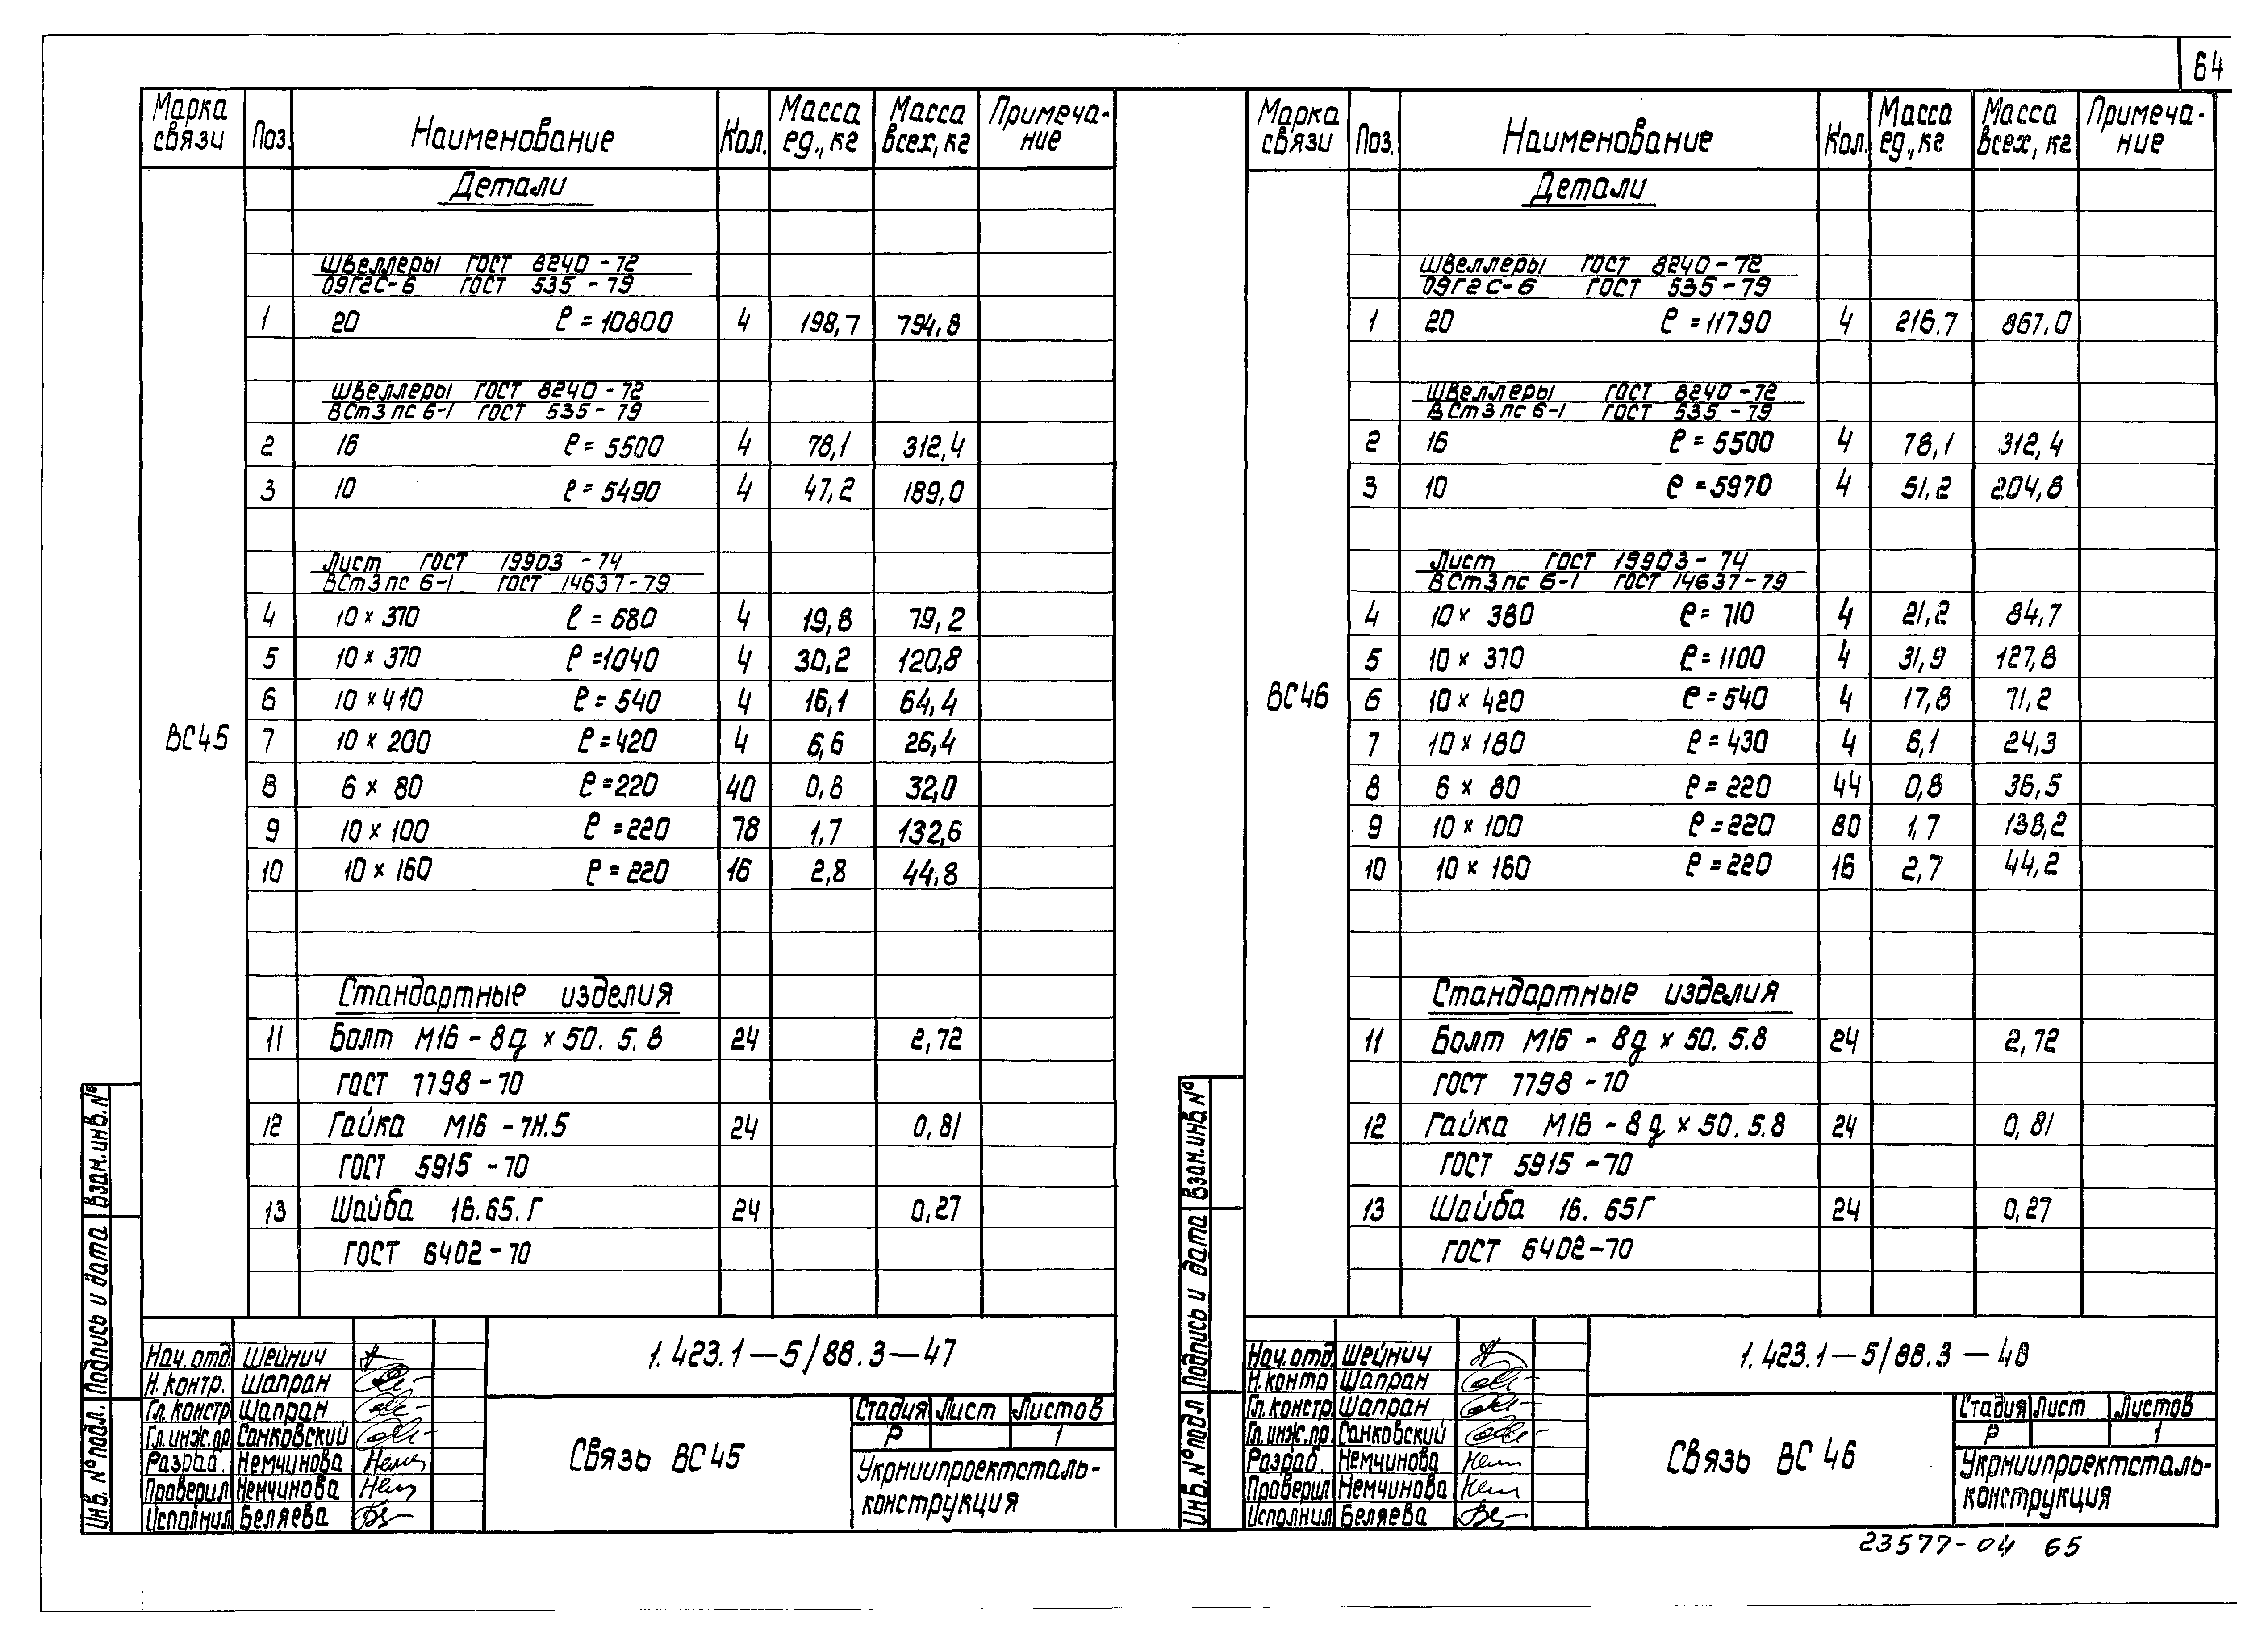 64
Марка связи Поз. Наименование Кол. Масса ед., кг Масса всех, кг Примечание
Детали
Швеллеры ГОСТ 8240-72
09Г2С-6 ГОСТ 535-79
1 20 ℓ=10800 4 198,7 794,8
Швеллеры ГОСТ 8240-72
ВСт3пс6-1 ГОСТ 535-79
2 16 ℓ=5500 4 78,1 312,4
3 10 ℓ=5490 4 47,2 189,0
Лист ГОСТ 19903-74
ВСт3пс6-1 ГОСТ 14637-79
4 10×370 ℓ=680 4 19,8 79,2
5 10×370 ℓ=1040 4 30,2 120,8
6 10×410 ℓ=540 4 16,1 64,4
ВС45 7 10×200 ℓ=420 4 6,6 26,4
8 6×80 ℓ=220 40 0,8 32,0
9 10×100 ℓ=220 78 1,7 132,6
10 10×160 ℓ=220 16 2,8 44,8
Стандартные изделия
11 Болт М16-8g×50.5.8 24 2,72
ГОСТ 7798-70
12 Гайка М16-7Н.5 24 0,81
ГОСТ 5915-70
13 Шайба 16.65.Г 24 0,27
ГОСТ 6402-70
Взам.инв.№
Подпись и дата
Инв.№подл.
Нач.отд. Шейнич
Н.контр. Шапран
Гл.констр Шапран
Гл.инж.пр Санковский
Разраб. Немчинова
Проверил Немчинова
Исполнил Беляева
1.423.1-5/88.3-47
Связь ВС45
Стадия Лист Листов
Р 1
Укрниипроектсталь-
конструкция
Марка связи Поз. Наименование Кол. Масса ед., кг Масса всех, кг Примечание
Детали
Швеллеры ГОСТ 8240-72
09Г2С-6 ГОСТ 535-79
1 20 ℓ=11790 4 216.7 867,0
Швеллеры ГОСТ 8240-72
ВСт3пс6-1 ГОСТ 535-79
2 16 ℓ=5500 4 78,1 312,4
3 10 ℓ=5970 4 51,2 204,8
Лист ГОСТ 19903-74
ВСт3пс6-1 ГОСТ 14637-79
4 10×380 ℓ=710 4 21,2 84,7
5 10×370 ℓ=1100 4 31,9 127,8
ВС46 6 10×420 ℓ=540 4 17,8 71,2
7 10×180 ℓ=430 4 6,1 24,3
8 6×80 ℓ=220 44 0,8 36,5
9 10×100 ℓ=220 80 1,7 138,2
10 10×160 ℓ=220 16 2,7 44,2
Стандартные изделия
11 Болт М16-8g×50.5.8 24 2,72
ГОСТ 7798-70
12 Гайка М16-8g×50.5.8 24 0,81
ГОСТ 5915-70
13 Шайба 16.65Г 24 0,27
ГОСТ 6402-70
Взам.инв.№
Подпись и дата
Инв.№подл
Нач.отд. Шейнич
Н.контр Шапран
Гл.констр. Шапран
Гл.инж.пр. Санковский
Разраб. Немчинова
Проверил Немчинова
Исполнил Беляева
1.423.1-5/88.3-48
Связь ВС46
Стадия Лист Листов
Р 1
Укрниипроектсталь-
конструкция
23577-04 65